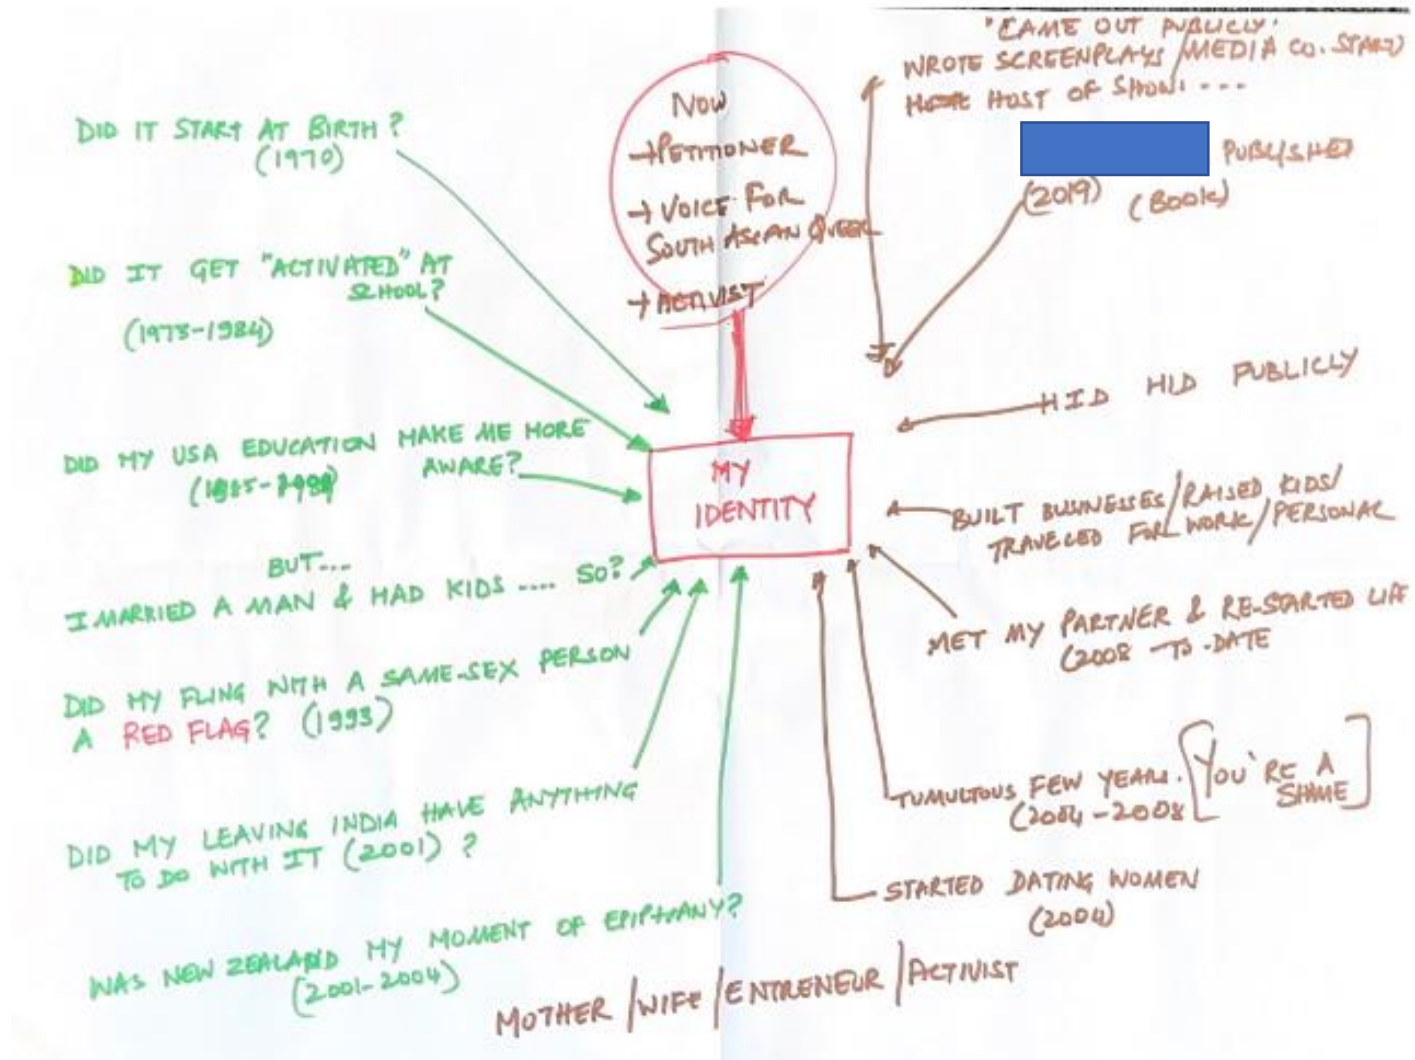 DID IT START AT BIRTH?
(1970)
DID IT GET "ACTIVATED" AT
SCHOOL?
(1975-1984)
DID MY USA EDUCATION MAKE ME MORE
AWARE?
BUT...
I MARRIED A MAN & HAD KIDS .... SO?
DID MY FLING WITH A SAME-SEX PERSON
A RED FLAG? (1993)
DID MY LEAVING INDIA HAVE ANYTHING
TO DO WITH IT (2001) ?
WAS NEW ZEALAND MY MOMENT OF EPIPHANY?
(2001-2004)
NOW
→PETITIONER
→ VOICE FOR
SOUTH ASIAN QUEER
→ ACTIVIST
MY
IDENTITY
"CAME OUT PUBLICLY"
WROTE SCREENPLAYS/MEDIA CO. START)
HOST OF SHOW: ---
PUBLISHED
(2019) (BOOK)
HID HID PUBLICLY
BUILT BUSINESSES/RAISED KIDS/
TRAVELED FOR WORK/PERSONAL
MET MY PARTNER & RE-STARTED LIFE
(2008 -TO-DATE
TUMULTOUS FEW YEARS. [YOU'RE A
SHAME]
(2004-2008
STARTED DATING WOMEN
(2004)
MOTHER/WIFE/ENTRENEUR/ACTIVIST